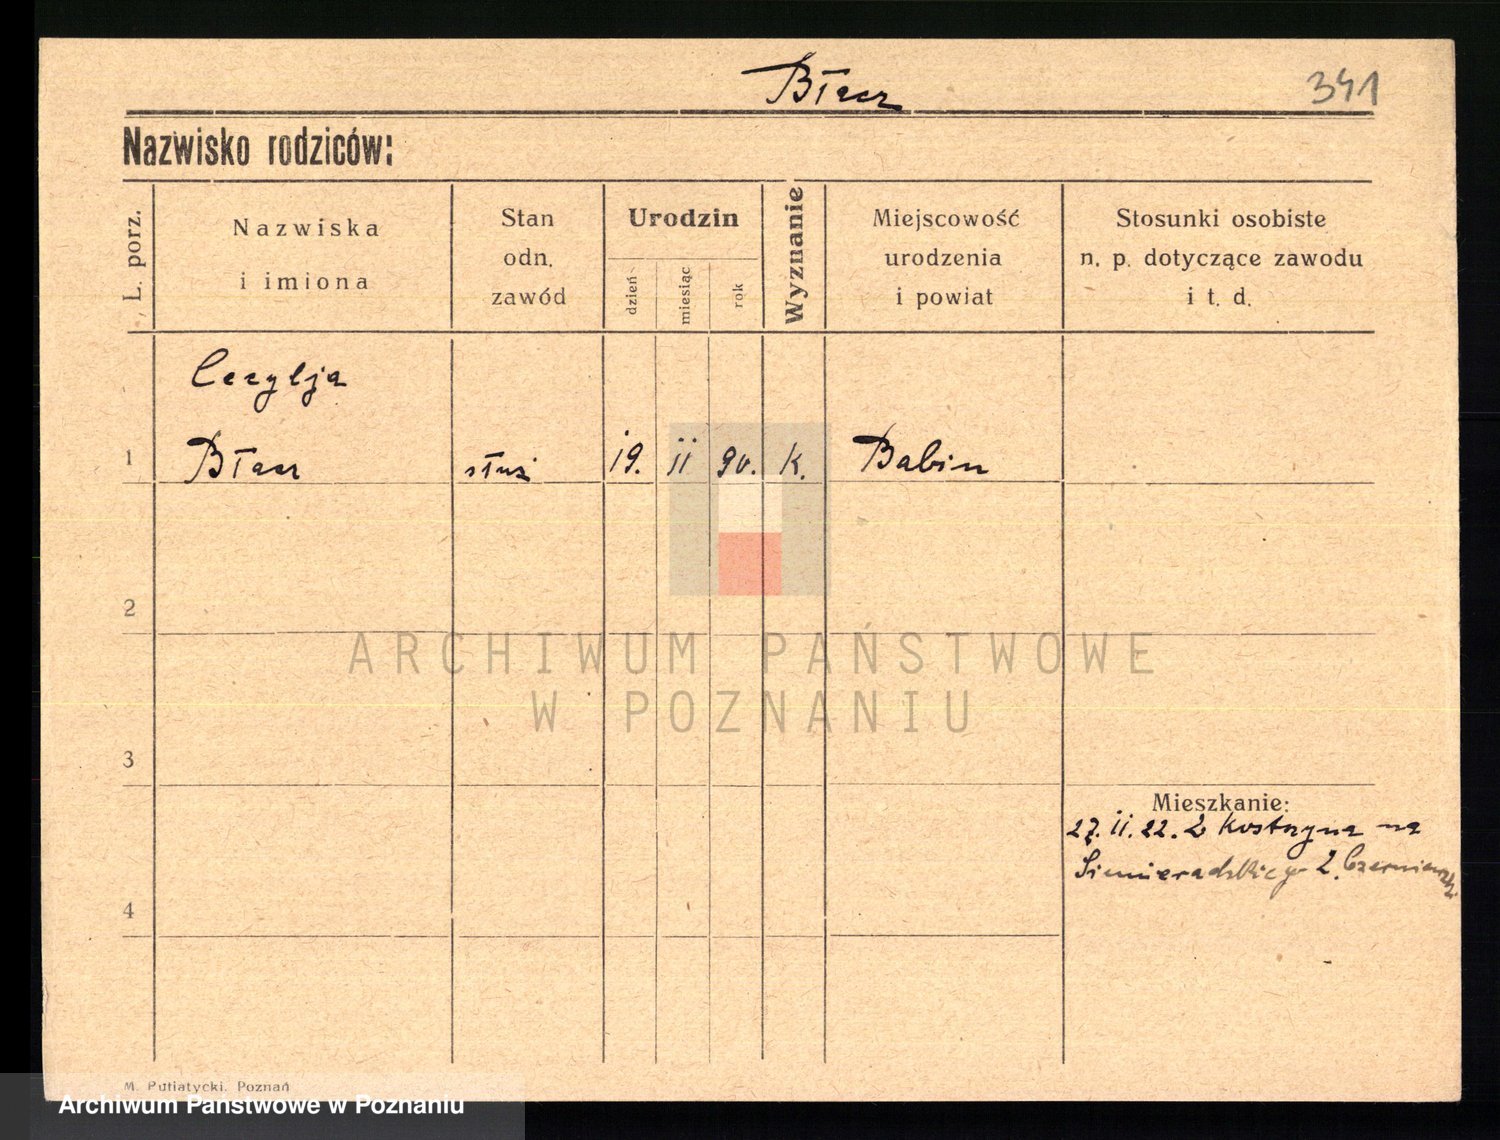 Błacz
341
Nazwisko rodziców:
L. porz.
Nazwiska
i imiona
Stan
odn.
zawód
Urodzin
dzień
miesiąc
rok
Wyznanie
Miejscowość
urodzenia
i powiat
Stosunki osobiste
n. p. dotyczące zawodu
i t. d.
Cecylja
1 Błacz służ 19. II 90. k. Babin
2
3
4
Mieszkanie:
27. II. 22. z Kostrzyna na
Siemieradzkiego 2.
ARCHIWUM PAŃSTWOWE
W POZNANIU
M. Putiatycki, Poznań
Archiwum Państwowe w Poznaniu